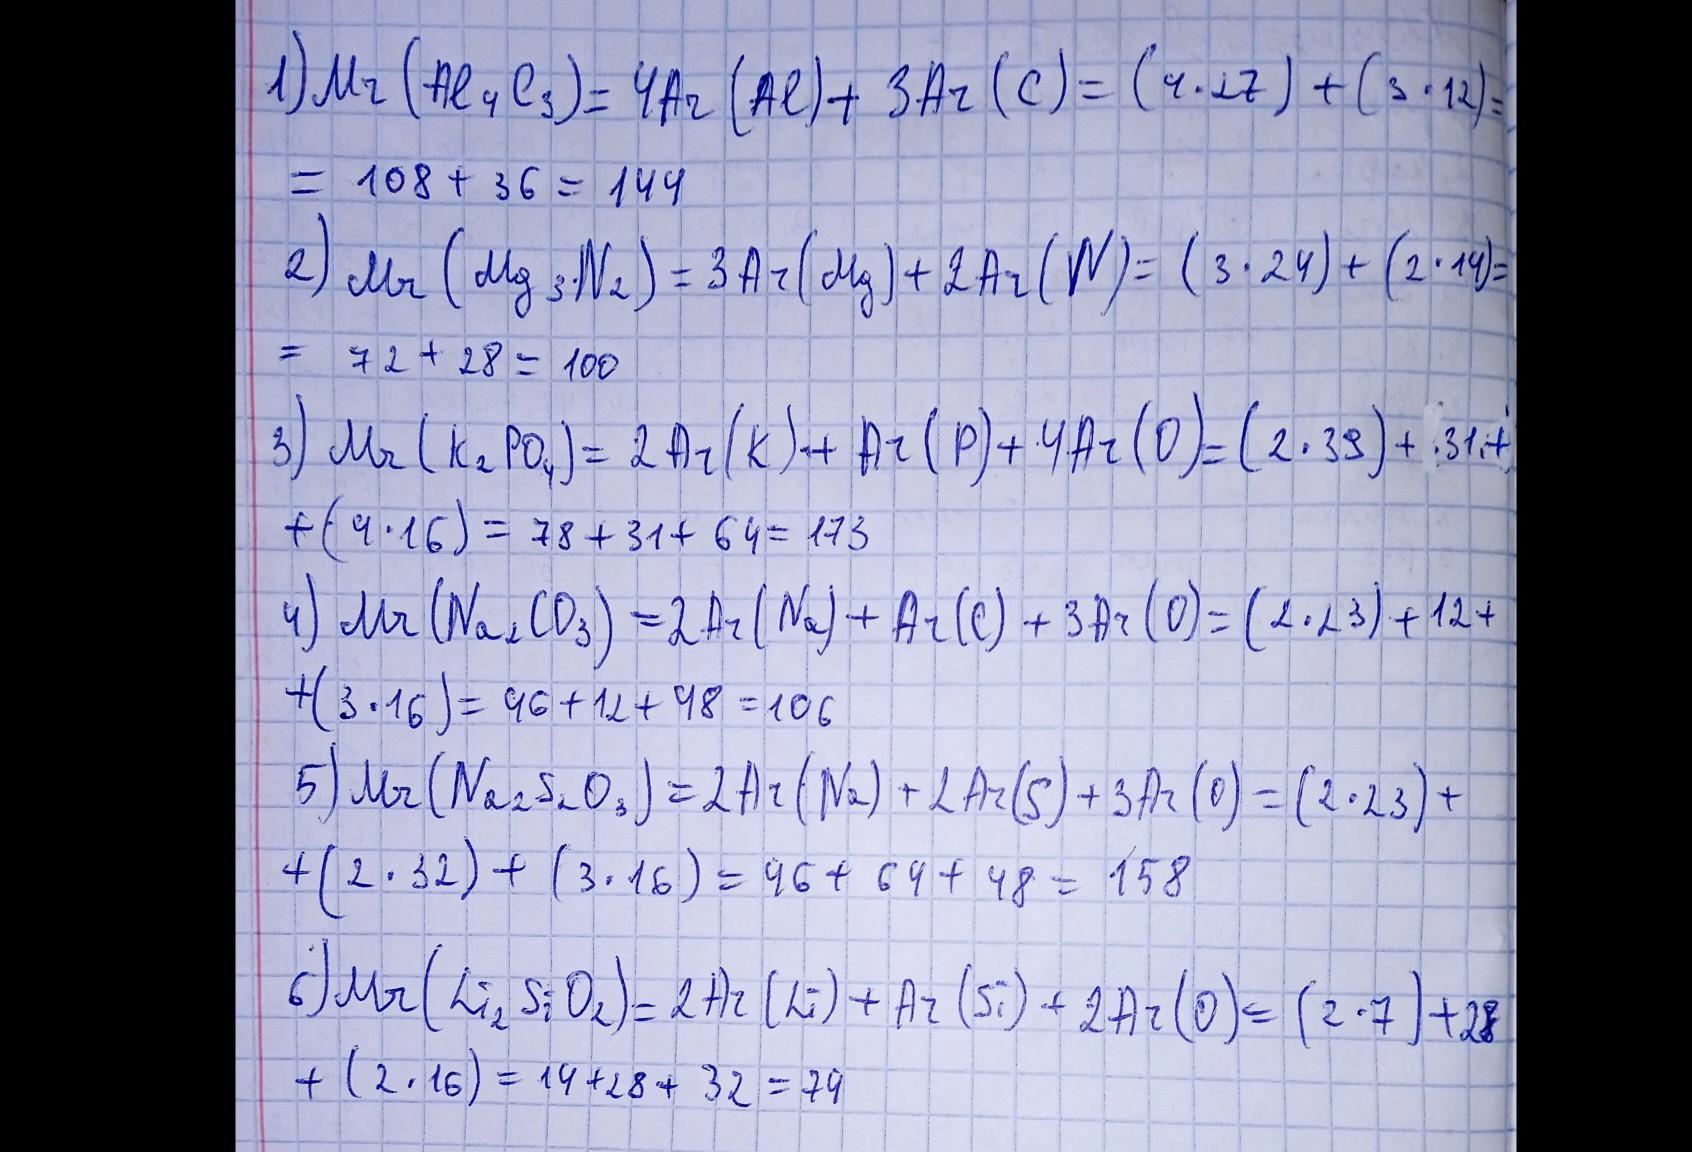 1) Mr (Al₄C₃) = 4Ar (Al) + 3Ar (C) = (4·27) + (3·12) =
= 108 + 36 = 144
2) Mr (Mg₃N₂) = 3Ar (Mg) + 2Ar (N) = (3·24) + (2·14) =
= 72 + 28 = 100
3) Mr (K₂PO₄) = 2Ar (K) + Ar (P) + 4Ar (O) = (2·39) + 31 +
+ (4·16) = 78 + 31 + 64 = 173
4) Mr (Na₂CO₃) = 2Ar (Na) + Ar (C) + 3Ar (O) = (2·23) + 12 +
+ (3·16) = 46 + 12 + 48 = 106
5) Mr (Na₂S₂O₃) = 2Ar (Na) + 2Ar (S) + 3Ar (O) = (2·23) +
+ (2·32) + (3·16) = 46 + 64 + 48 = 158
6) Mr (Li₂SiO₂) = 2Ar (Li) + Ar (Si) + 2Ar (O) = (2·7) + 28
+ (2·16) = 14 + 28 + 32 = 74